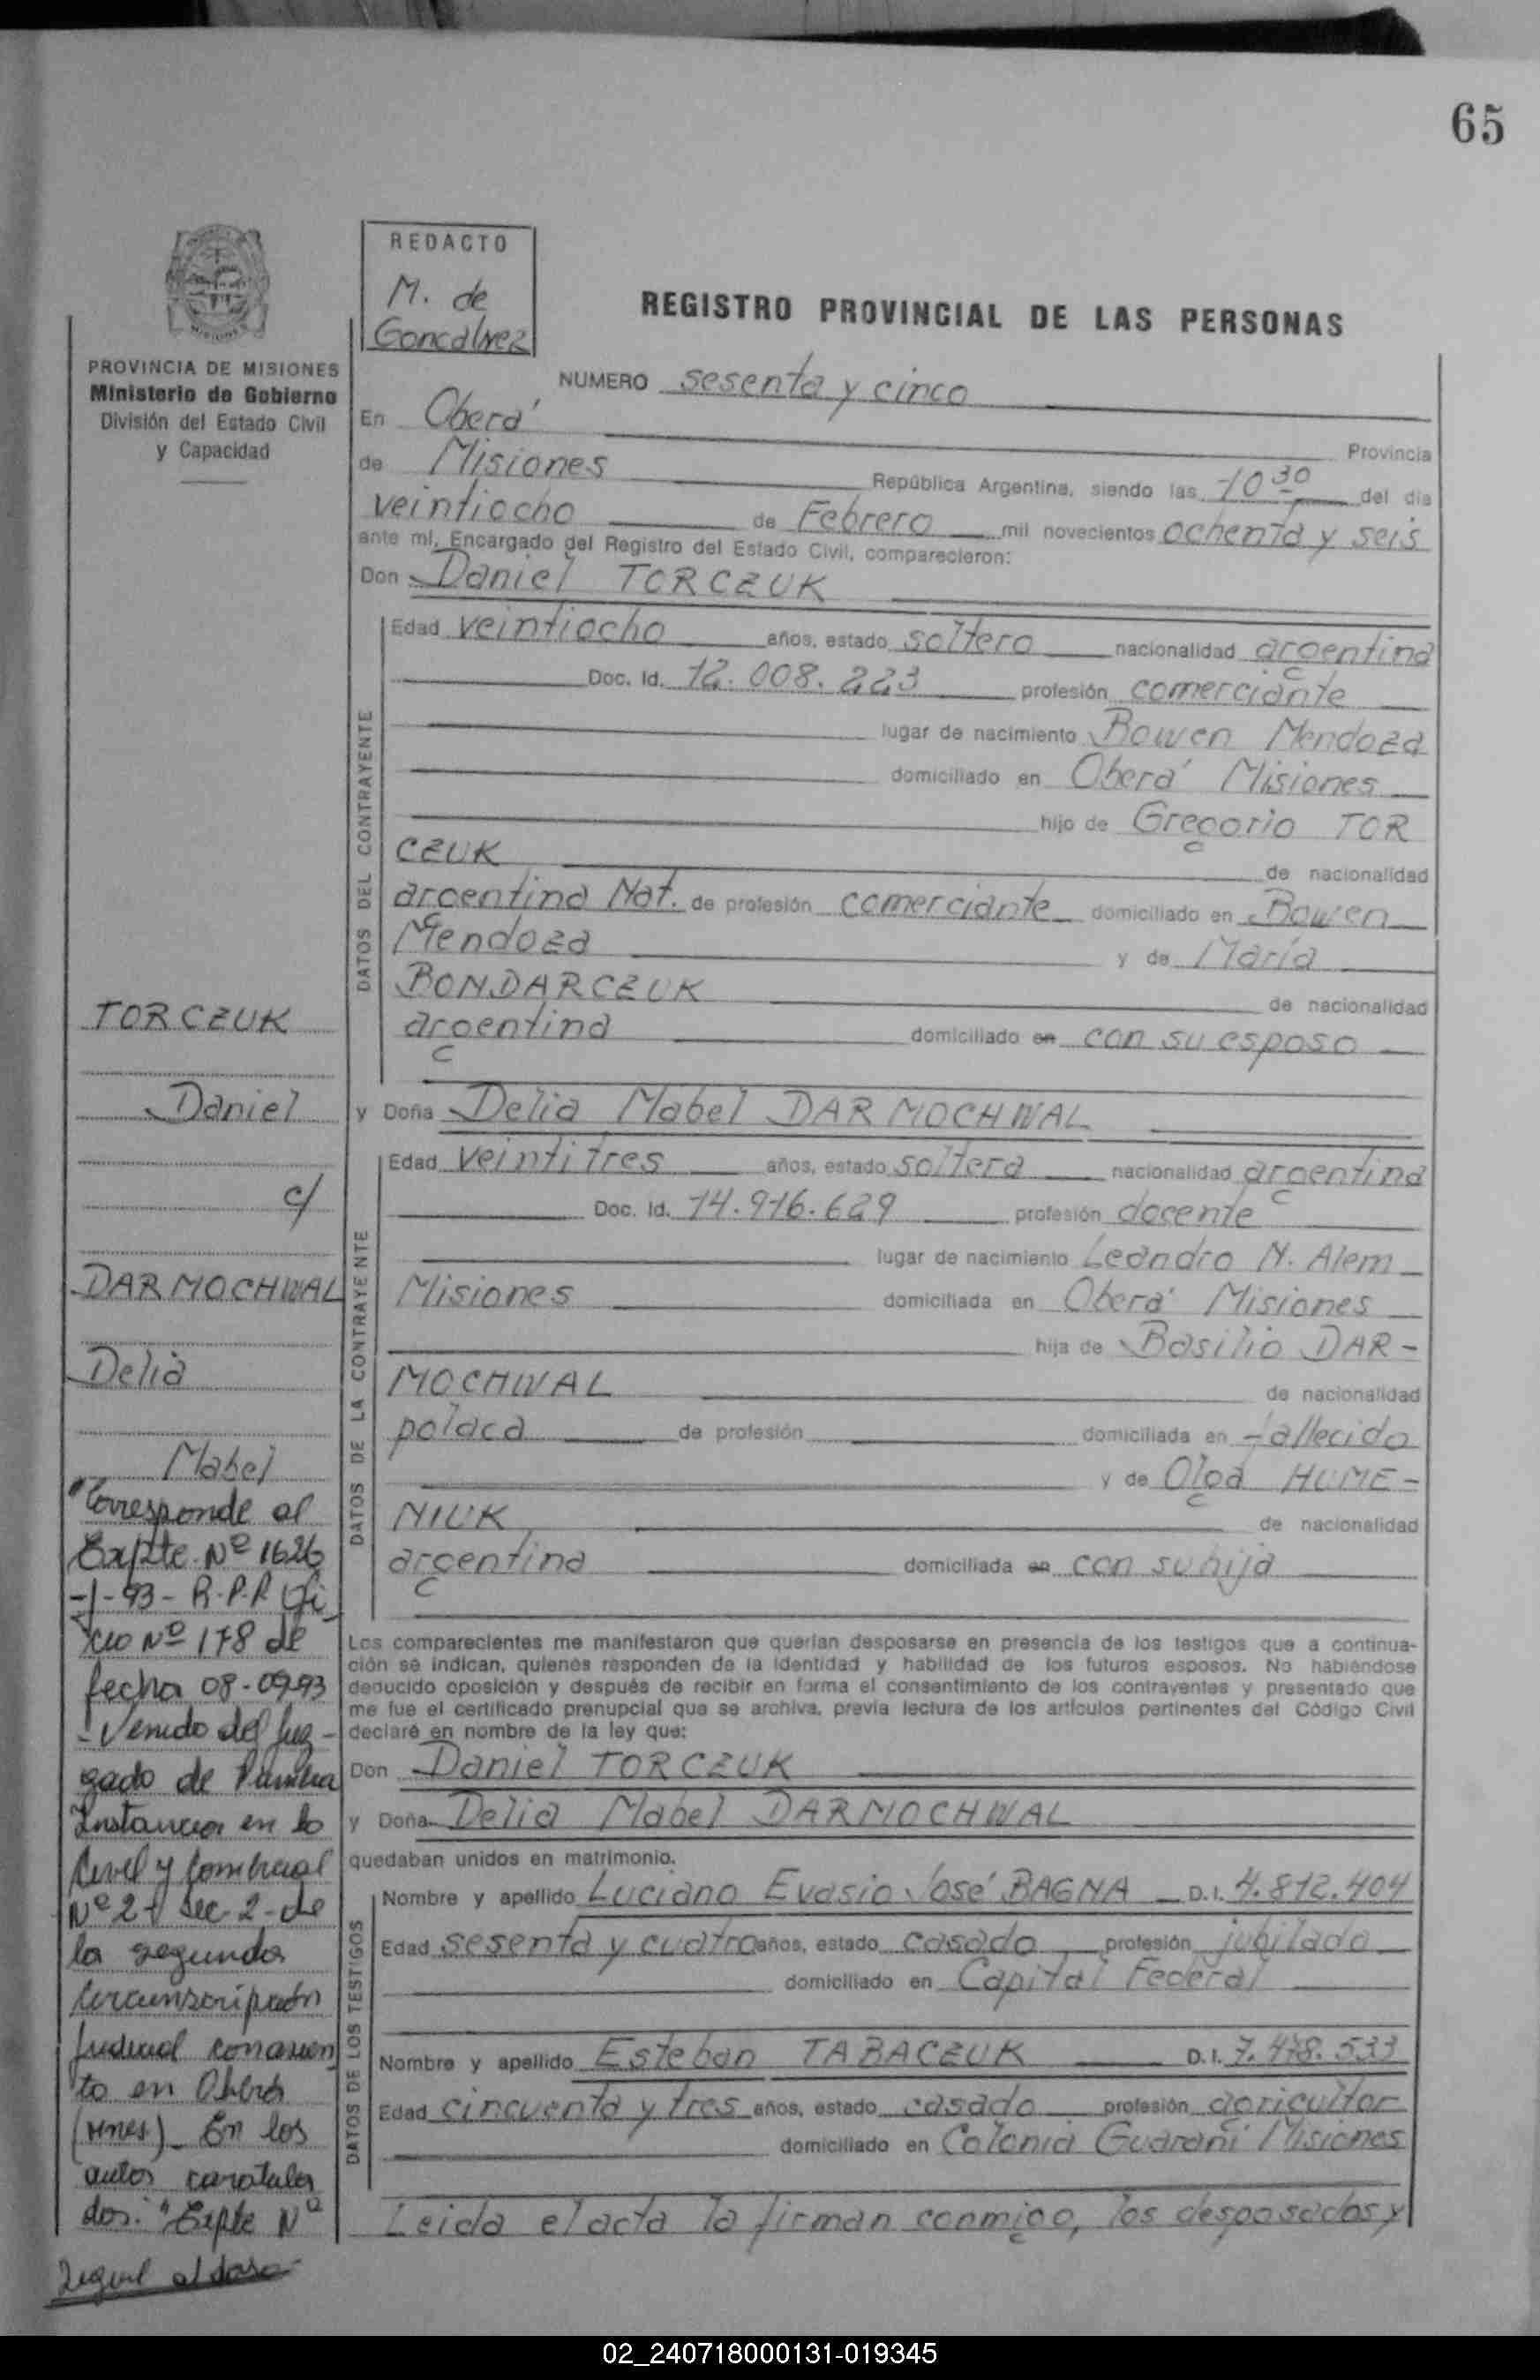 65
REDACTO
M. de
Goncalvez
REGISTRO PROVINCIAL DE LAS PERSONAS
PROVINCIA DE MISIONES
Ministerio de Gobierno
División del Estado Civil
y Capacidad
NUMERO sesenta y cinco
En Oberá Provincia
de Misiones República Argentina, siendo las 10 30 del día
veintiocho de Febrero mil novecientos ochenta y seis
ante mí, Encargado del Registro del Estado Civil, comparecieron:
Don Daniel TORCZUK
DATOS DEL CONTRAYENTE
Edad veintiocho años, estado soltero nacionalidad argentina
Doc. Id. 12.008.223 profesión comerciante
lugar de nacimiento Bowen Mendoza
domiciliado en Oberá Misiones
hijo de Gregorio TOR
CZUK de nacionalidad
argentina Nat. de profesión comerciante domiciliado en Bowen
Mendoza y de María
BONDARCZUK de nacionalidad
argentina domiciliado en con su esposo
y Doña Delia Mabel DARMOCHWAL
DATOS DE LA CONTRAYENTE
Edad veintitres años, estado soltera nacionalidad argentina
Doc. Id. 14.916.629 profesión docente
lugar de nacimiento Leandro N. Alem
Misiones domiciliada en Oberá Misiones
hija de Basilio DAR-
MOCHWAL de nacionalidad
polaca de profesión domiciliada en fallecido
y de Olga HUME-
NIUK de nacionalidad
argentina domiciliada en con su hija
Los comparecientes me manifestaron que querían desposarse en presencia de los testigos que a continua-
ción se indican, quienes responden de la identidad y habilidad de los futuros esposos. No habiéndose
deducido oposición y después de recibir en forma el consentimiento de los contrayentes y presentado que
me fue el certificado prenupcial que se archiva, previa lectura de los artículos pertinentes del Código Civil
declaré en nombre de la ley que:
Don Daniel TORCZUK
y Doña Delia Mabel DARMOCHWAL
quedaban unidos en matrimonio.
DATOS DE LOS TESTIGOS
Nombre y apellido Luciano Evasio José BAGNA D.I. 4.812.404
Edad sesenta y cuatro años, estado casado profesión jubilado
domiciliado en Capital Federal
Nombre y apellido Esteban TABACZUK D.I. 7.478.533
Edad cincuenta y tres años, estado casado profesión agricultor
domiciliado en Colonia Guaraní Misiones
Leida el acta la firman conmigo, los desposados y
TORCZUK
Daniel
c/
DARMOCHWAL
Delia
Mabel
"Corresponde al
Expte. Nº 1626
-1-93- R.P.P. Ofi
cio Nº 178 de
fecha 08-09-93
- Venido del Juz-
gado de Primera
Instancia en lo
Civil y Comercial
Nº 2- Sec. 2- de
la segunda
Circunscripción
Judicial con asien
to en Oberá
(Mnes)- En los
autos caratula
dos: "Expte Nº
Sigue al dorso-
02_240718000131-019345